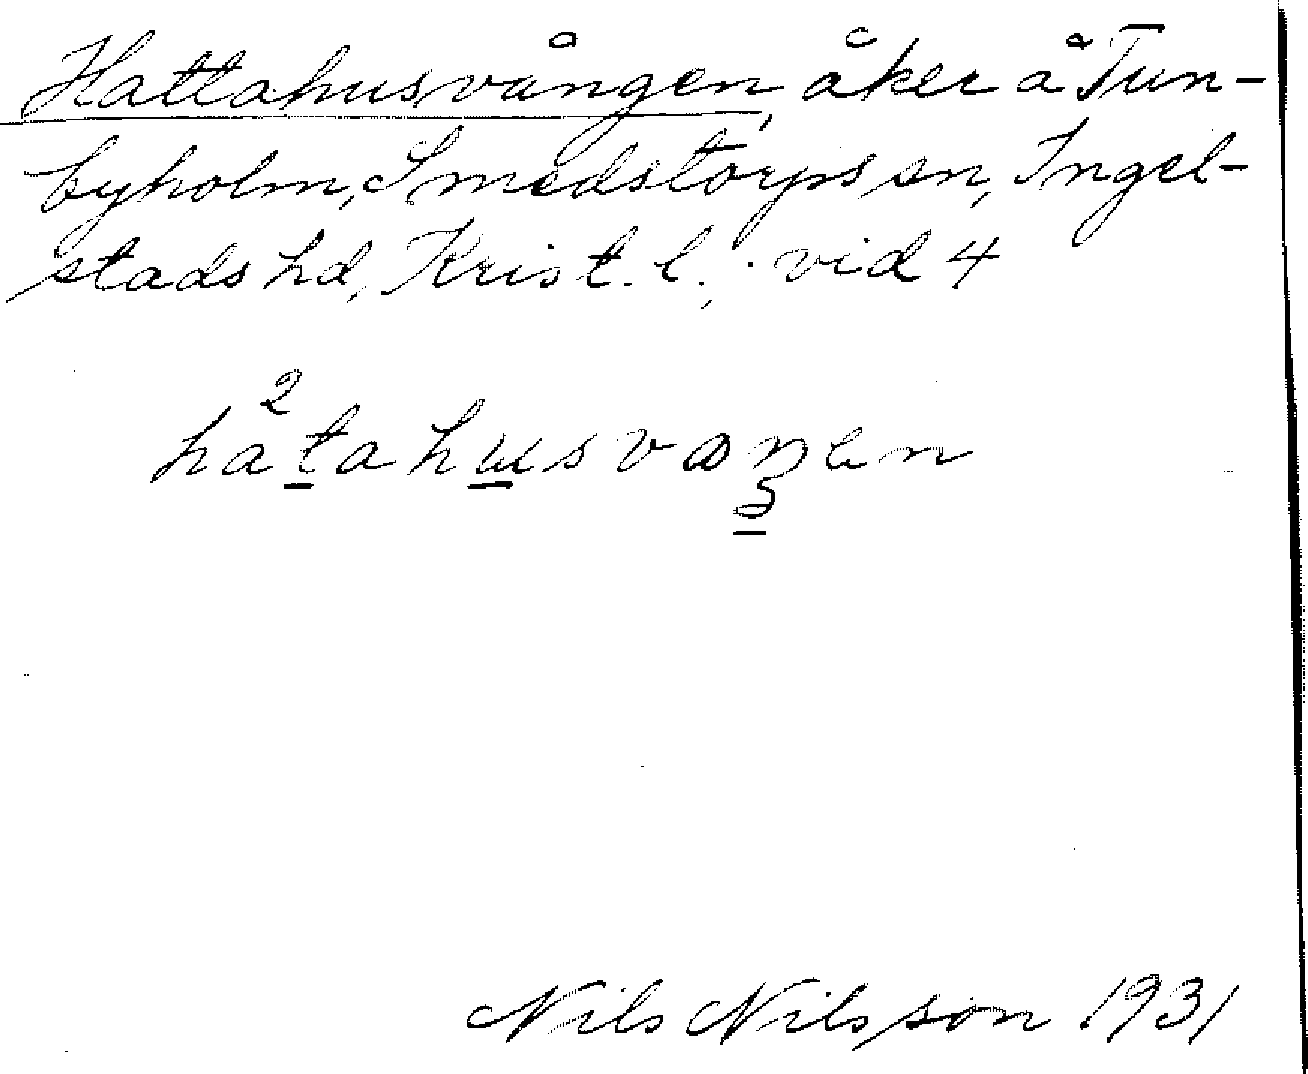 Hattahusvången, åker å Tun-
byholm, Smedstorps sn, Ingel-
stads hd, Krist. l.; vid 4
hа²tahusvaŋen
Nils Nilsson 1931